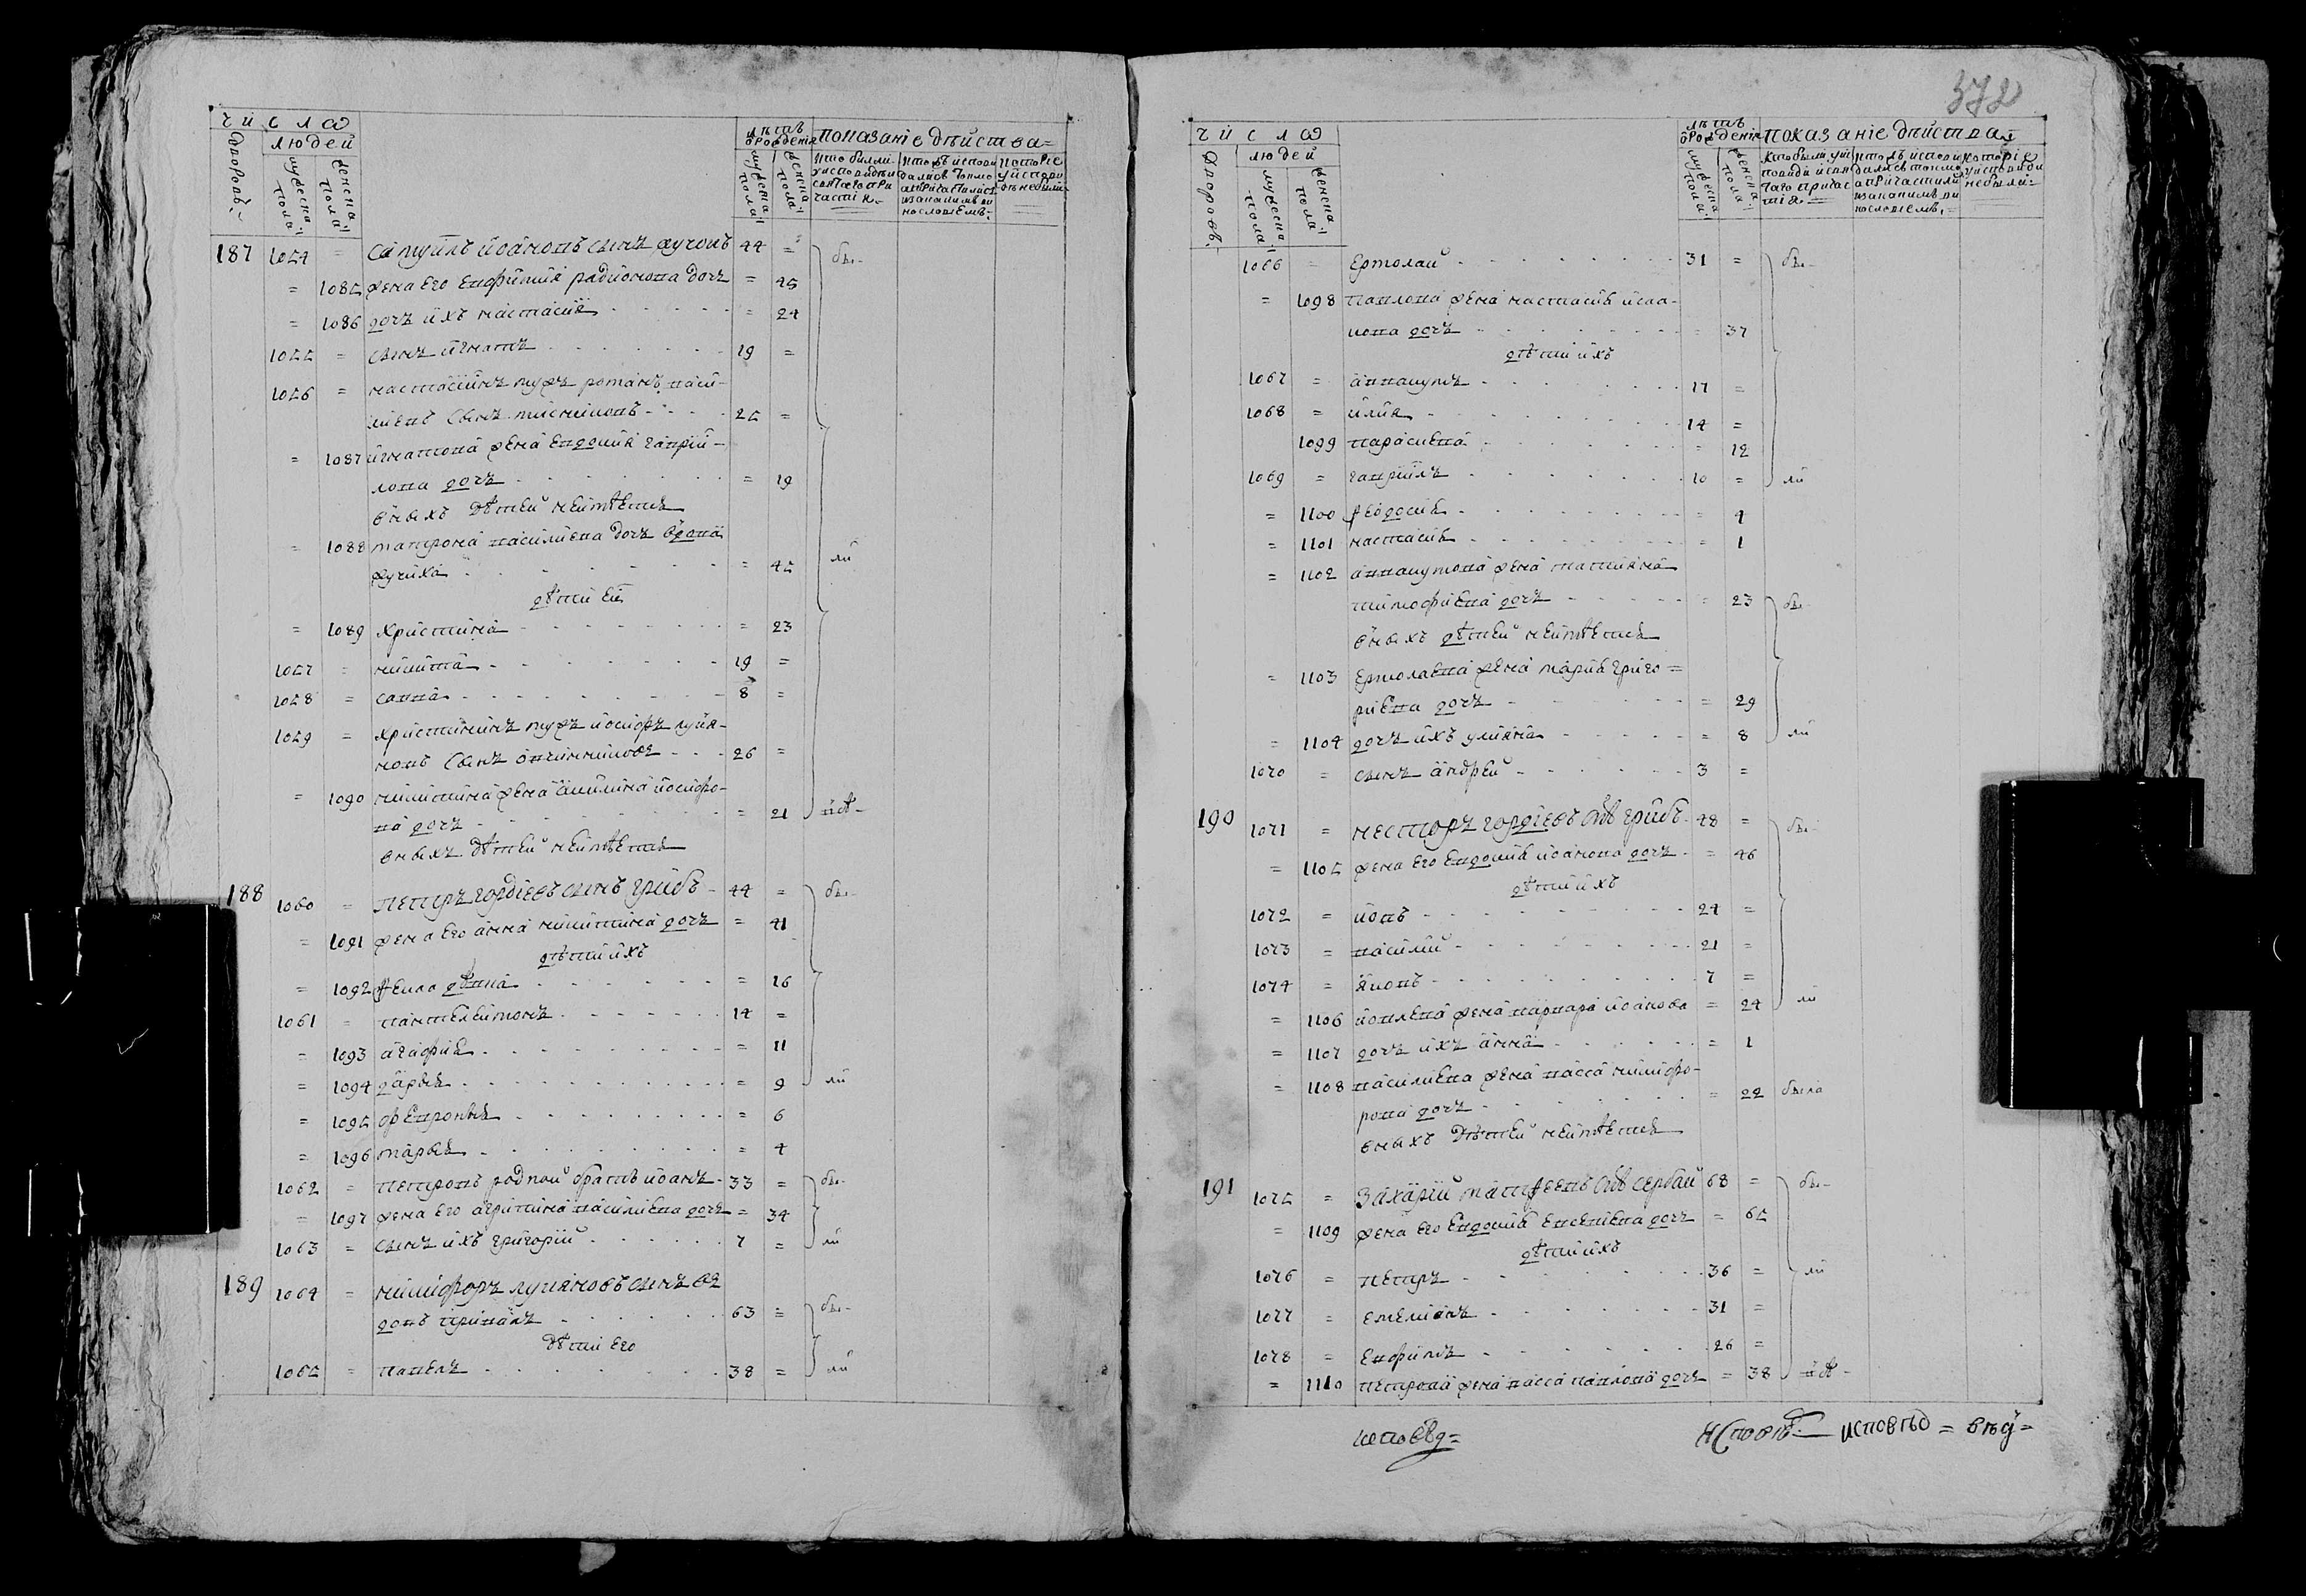 число
дворовъ
людей
мужеска пола
женска пола
лѣтъ отрожденія
мужеска пола
женска пола
показаніе дѣйства
кто были у исповѣди и святаго причастія
которіе у исповѣди не были
187 1054 = Самуилъ иоановъ сынъ жученъ 44 = бы-
= 1085 жена его Евфимия радионова дочъ = 45
= 1086 дочъ ихъ настасия = 24
1055 = сынъ игнатъ 19 =
1056 = настасиинъ мужъ романъ васи-
лиевъ сынъ 25 =
= 1087 игнатова жена Евдокия гаврии-
лова дочъ = 19
оныхъ дѣтей неимѣется
= 1088 матрона василиева дочъ вдова
жучиха = 45 ли
дѣти ей
= 1089 христина = 23
1057 = никита 19 =
1058 = савва 8 =
1059 = христининъ мужъ иосифъ лукя-
новъ сынъ 26 =
= 1090 никитина жена акилина иосифо-
ва дочъ = 21 всѣ-
оныхъ дѣтей неимѣется
188 1060 = Петръ гордіевъ сынъ грибъ 44 = бы-
= 1091 жена его анна никитина дочъ = 41
дѣти ихъ
= 1092 Fекла дѣвка = 16
1061 = пантелеимонъ 14 =
= 1093 агафия = 11
= 1094 дарья = 9 ли
= 1095 февронья = 6
= 1096 марья = 4
1062 = петровъ родной братъ иоанъ 33 = бы-
= 1097 жена его агрипина василиева дочъ = 34
1063 = сынъ ихъ григорий 7 = ли
189 1064 = никифоръ лукяновъ сынъ в-
довъ 63 = бы-
дѣти его
1065 = павелъ 38 = ли
372
число
дворовъ
людей
мужеска пола
женска пола
лѣтъ отрожденія
мужеска пола
женска пола
показаніе дѣйства
1066 = Ермолай 31 = бы-
= 1098 павлова жена настасия исаа-
кова дочъ = 37
дѣти ихъ
1067 = аввакумъ 17 =
1068 = илия 14 =
1099 параскева = 12
1069 = гавриилъ 10 = ли
= 1100 Fеодосия = 4
= 1101 настасия = 1
= 1102 аввакумова жена татияна
тимофиева дочъ = 23 бы-
оныхъ дѣтей неимѣется
= 1103 Ермолаева жена мария григо=
риева дочъ = 29
= 1104 дочъ ихъ улияна = 8 ли
1070 = сынъ андрей 3 =
190 1071 = несторъ гордіевъ снъ грибъ 48 = бы-
= 1105 жена его Евдокия иоанова дочъ = 46
дѣти ихъ
1072 = иовъ 24 =
1073 = василий 21 =
1074 = яковъ 7 =
= 1106 иовлева жена варвара иоанова = 24 ли
= 1107 дочъ ихъ анна = 1
= 1108 василиева жена васса никифо-
рова дочъ = 22 была
оныхъ дѣтей неимѣется
191 1075 = Захарий матFеевъ снъ сербай 68 = бы-
= 1109 жена его Евдокия Евсеиева дочъ = 65
дѣти ихъ
1076 = петръ 36 = ли
1077 = емелиянъ 31 =
1078 = Евфимъ 26 =
= 1110 петрова жена васса павлова дочъ = 38 всѣ-
исповѣд= исповѣ исповѣд = вѣд=